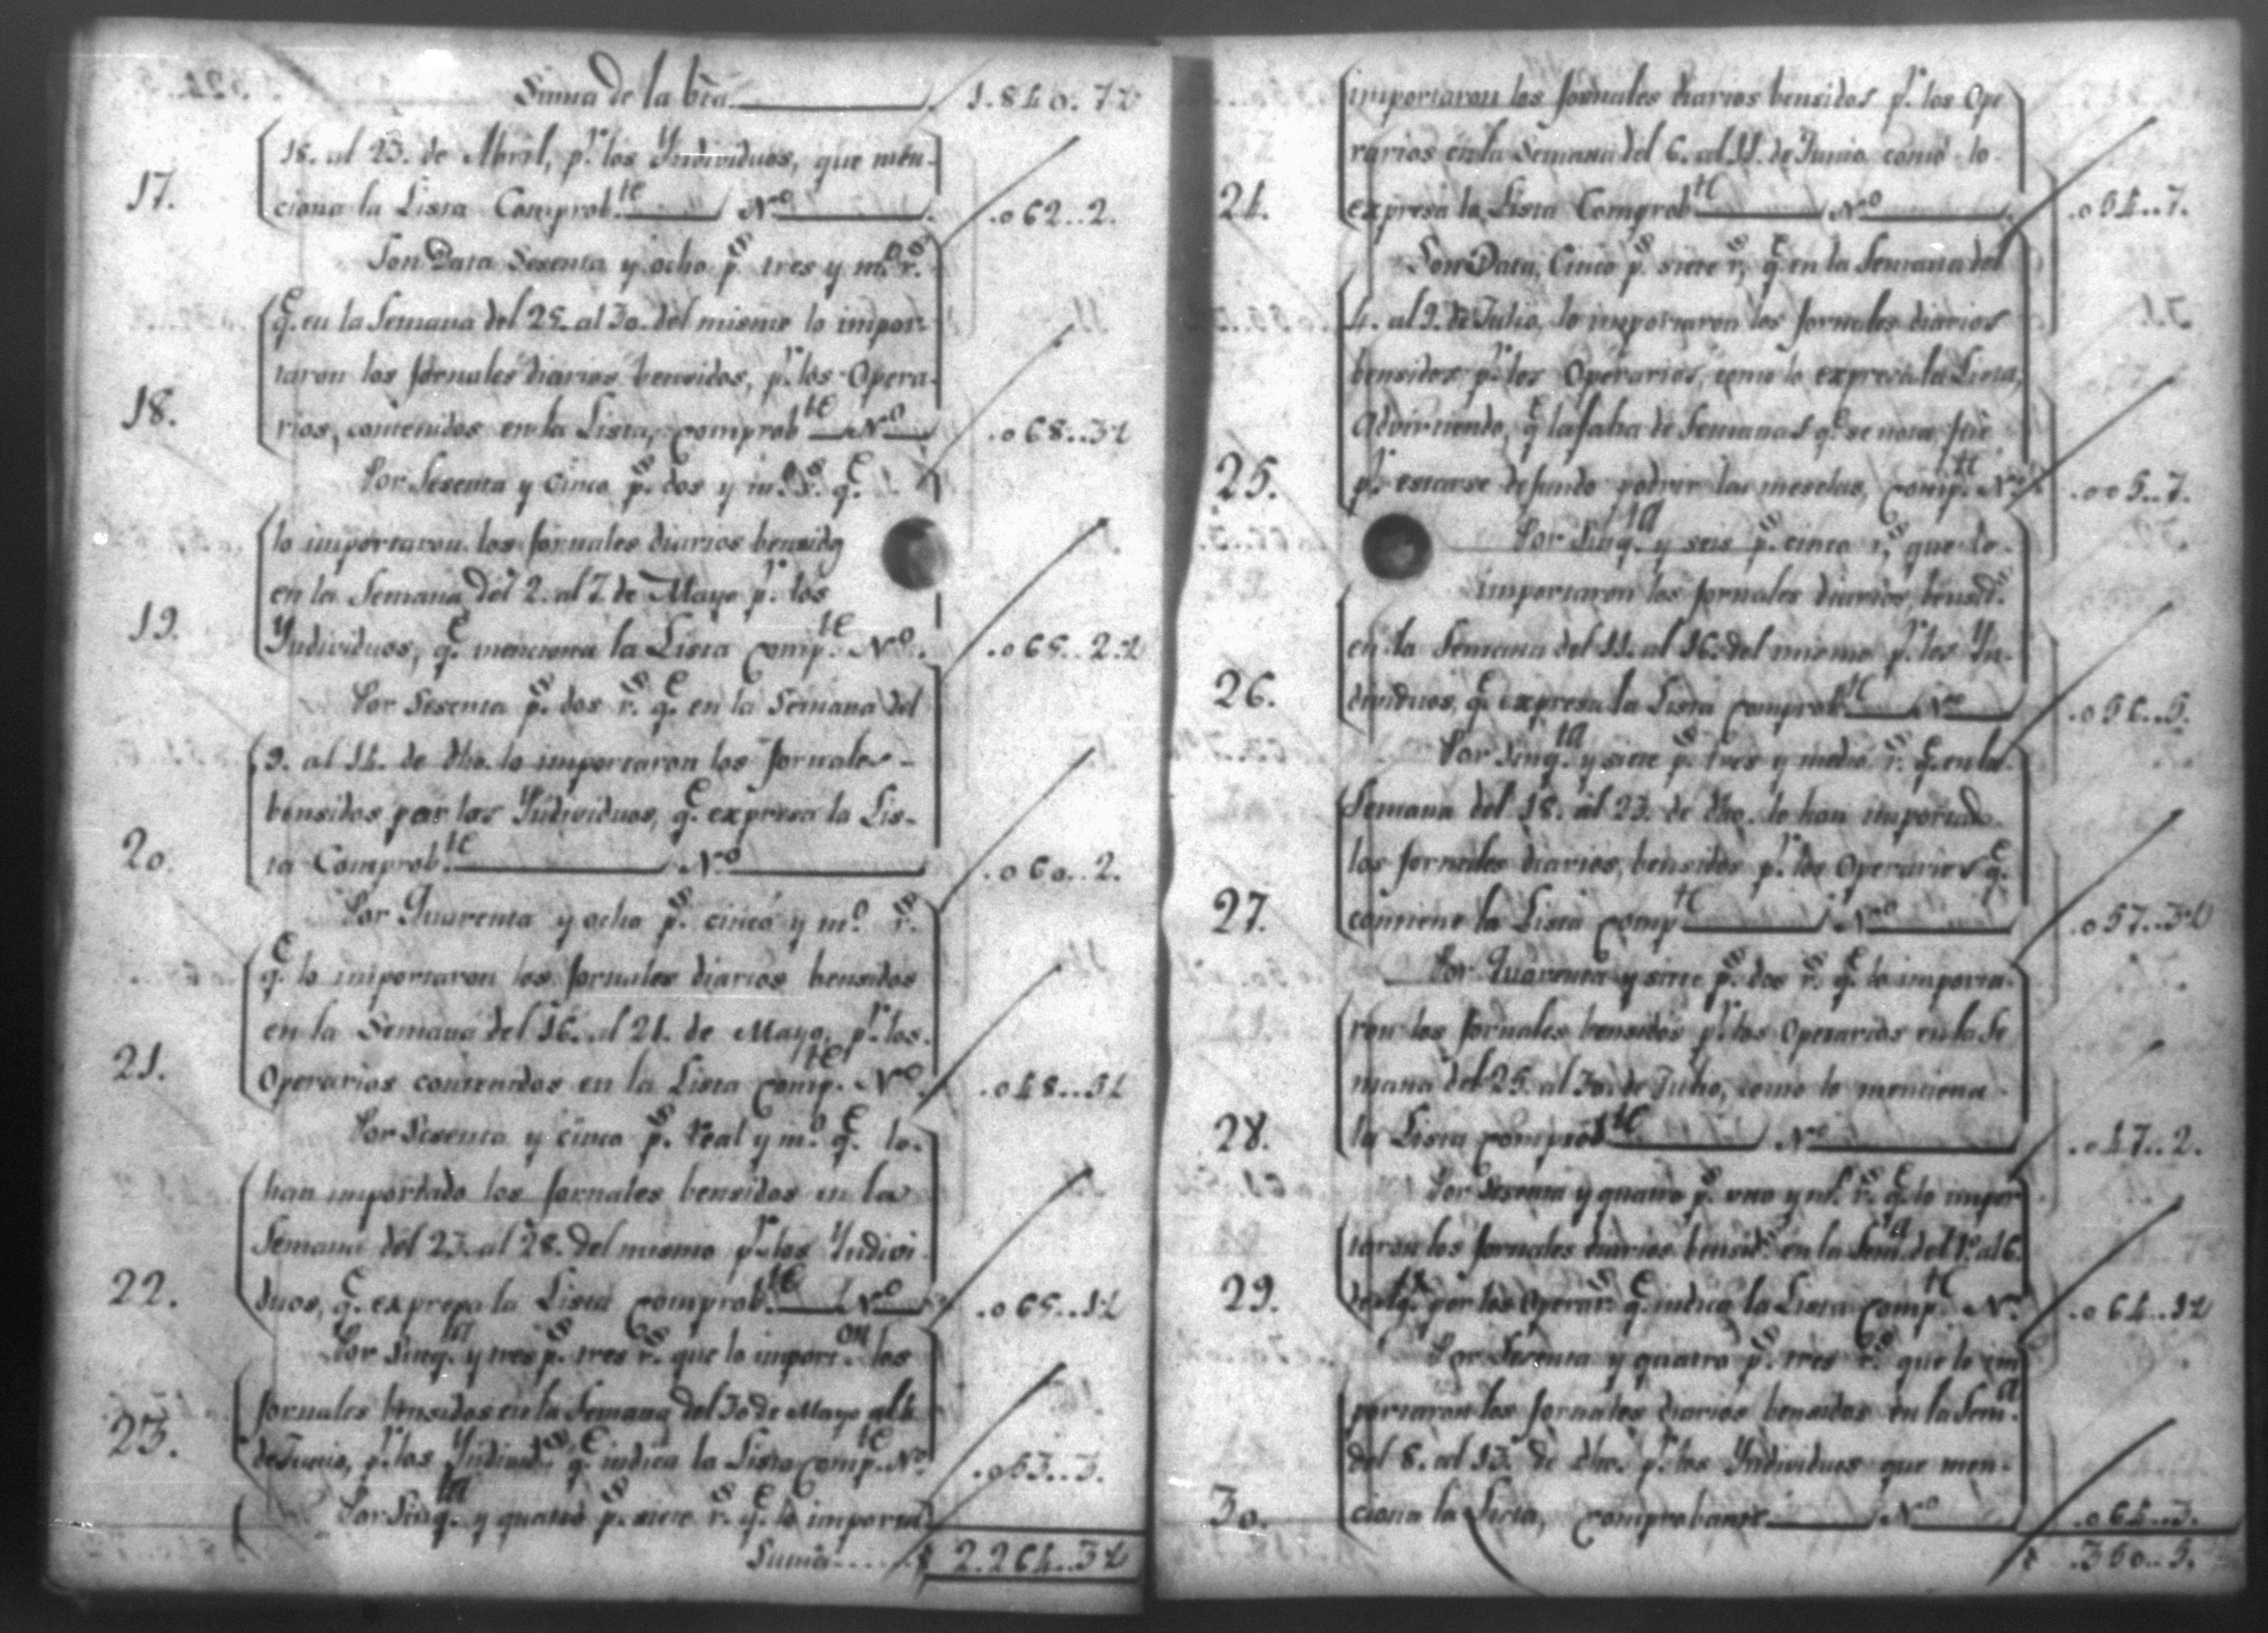 Suma de la bta. 1.840. 7½
18. al 23. de Abril, pr. los Yndividuos, que men-
17. ciona la Lista Comprob.te Nº .062..2.
Son Data Sesenta y ocho ps. tres y mº. rs.
qe. en la Semana del 25. al 30. del mismo lo impor-
taron los jornales diarios bensidos, pr. los Opera-
18. rios, contenidos en la Lista, comprob.te Nº .068..3½
Por Sesenta y cinco ps. dos y mº. rs. qe.
lo importaron los jornales diarios bensidos
en la Semana del 2. al 7. de Mayo pr. los
19. Yndividuos, qe. menciona la Lista comp.te Nº. .065..2½
Por Sesenta ps. dos rs. qe. en la Semana del
9. al 14. de dho. lo importaron los jornales
bensidos por los Yndividuos, qe. expresa la Lis-
20. ta Comprob.te Nº .060..2.
Por Quarenta y ocho ps. cinco y mº. rs.
qe. lo importaron los jornales diarios bensidos
en la Semana del 16. al 21. de Mayo, pr. los
21. Operarios contenidos en la Lista comp.te Nº. .048..5½
Por Sesenta y cinco ps. real y mº. qe. lo
han importado los jornales bensidos en la
Semana del 23. al 28. del mismo pr. los Yndivi-
22. duos, qe. expresa la Lista comprob.te Nº .065..1½
Por Sinq.ta y tres ps. tres rs. que lo import.on los
jornales bensidos en la Semana del 30 de Mayo al 4.
23. de Junio, pr. los Yndivid.s qe. indica la Lista comp.te Nº. .053..3.
Por Sinq.ta y quatro ps. siete rs. qe. lo importa
Suma 2.264..3½
importaron los jornales diarios bensidos pr. los Ope
rarios en la Semana del 6. al 11. de Junio como lo
24. expresa la Lista Comprob.te Nº .054..7.
Son Data, Cinco ps. siete rs. qe. en la Semana del
4. al 9. de Julio, lo importaron los jornales diarios
bensidos pr. los Operarios, como lo expresa la Lista,
Advirtiendo, qe. la falta de Semanas qe. se nota, fue
25. pr. estarse dejando podrir las mesclas, comp.te Nº. .005..7.
Por Sinq.ta y seis ps. cinco rs. que lo
importaron los jornales diarios, bensid.s
en la Semana del 11. al 16. del mismo pr. los Yn-
26. dividuos, qe. expresa la Lista comprob.te Nº .056..5.
Por Sinq.ta y siete ps. tres y medio rs. qe. en la
Semana del 18. al 23. de dho. lo han importado
los jornales diarios, bensidos pr. los Operarios qe.
27. contiene la Lista comp.te Nº .057..3½
Por Quarenta y siete ps. dos rs. qe. lo importa-
ron los jornales bensidos pr. los Operarios en la Se
mana del 25. al 30. de Julio, como lo menciona
28. la Lista comprob.te Nº .047..2.
Por Sesenta y quatro ps. uno y mº. rs. qe. lo impor
taron los jornales diarios bensid.s en la Sem.a del 1º. al 6.
29. de Ag.to por los Operar.s qe. indica la Lista comp.te Nº. .064..1½
Por Sesenta y quatro ps. tres rs. que lo im
portaron los jornales diarios bensidos en la Sem.a
del 8. al 13. de dho. pr. los Yndividuos que men-
30. ciona la Lista, comprobante Nº .064..3.
.350..5.